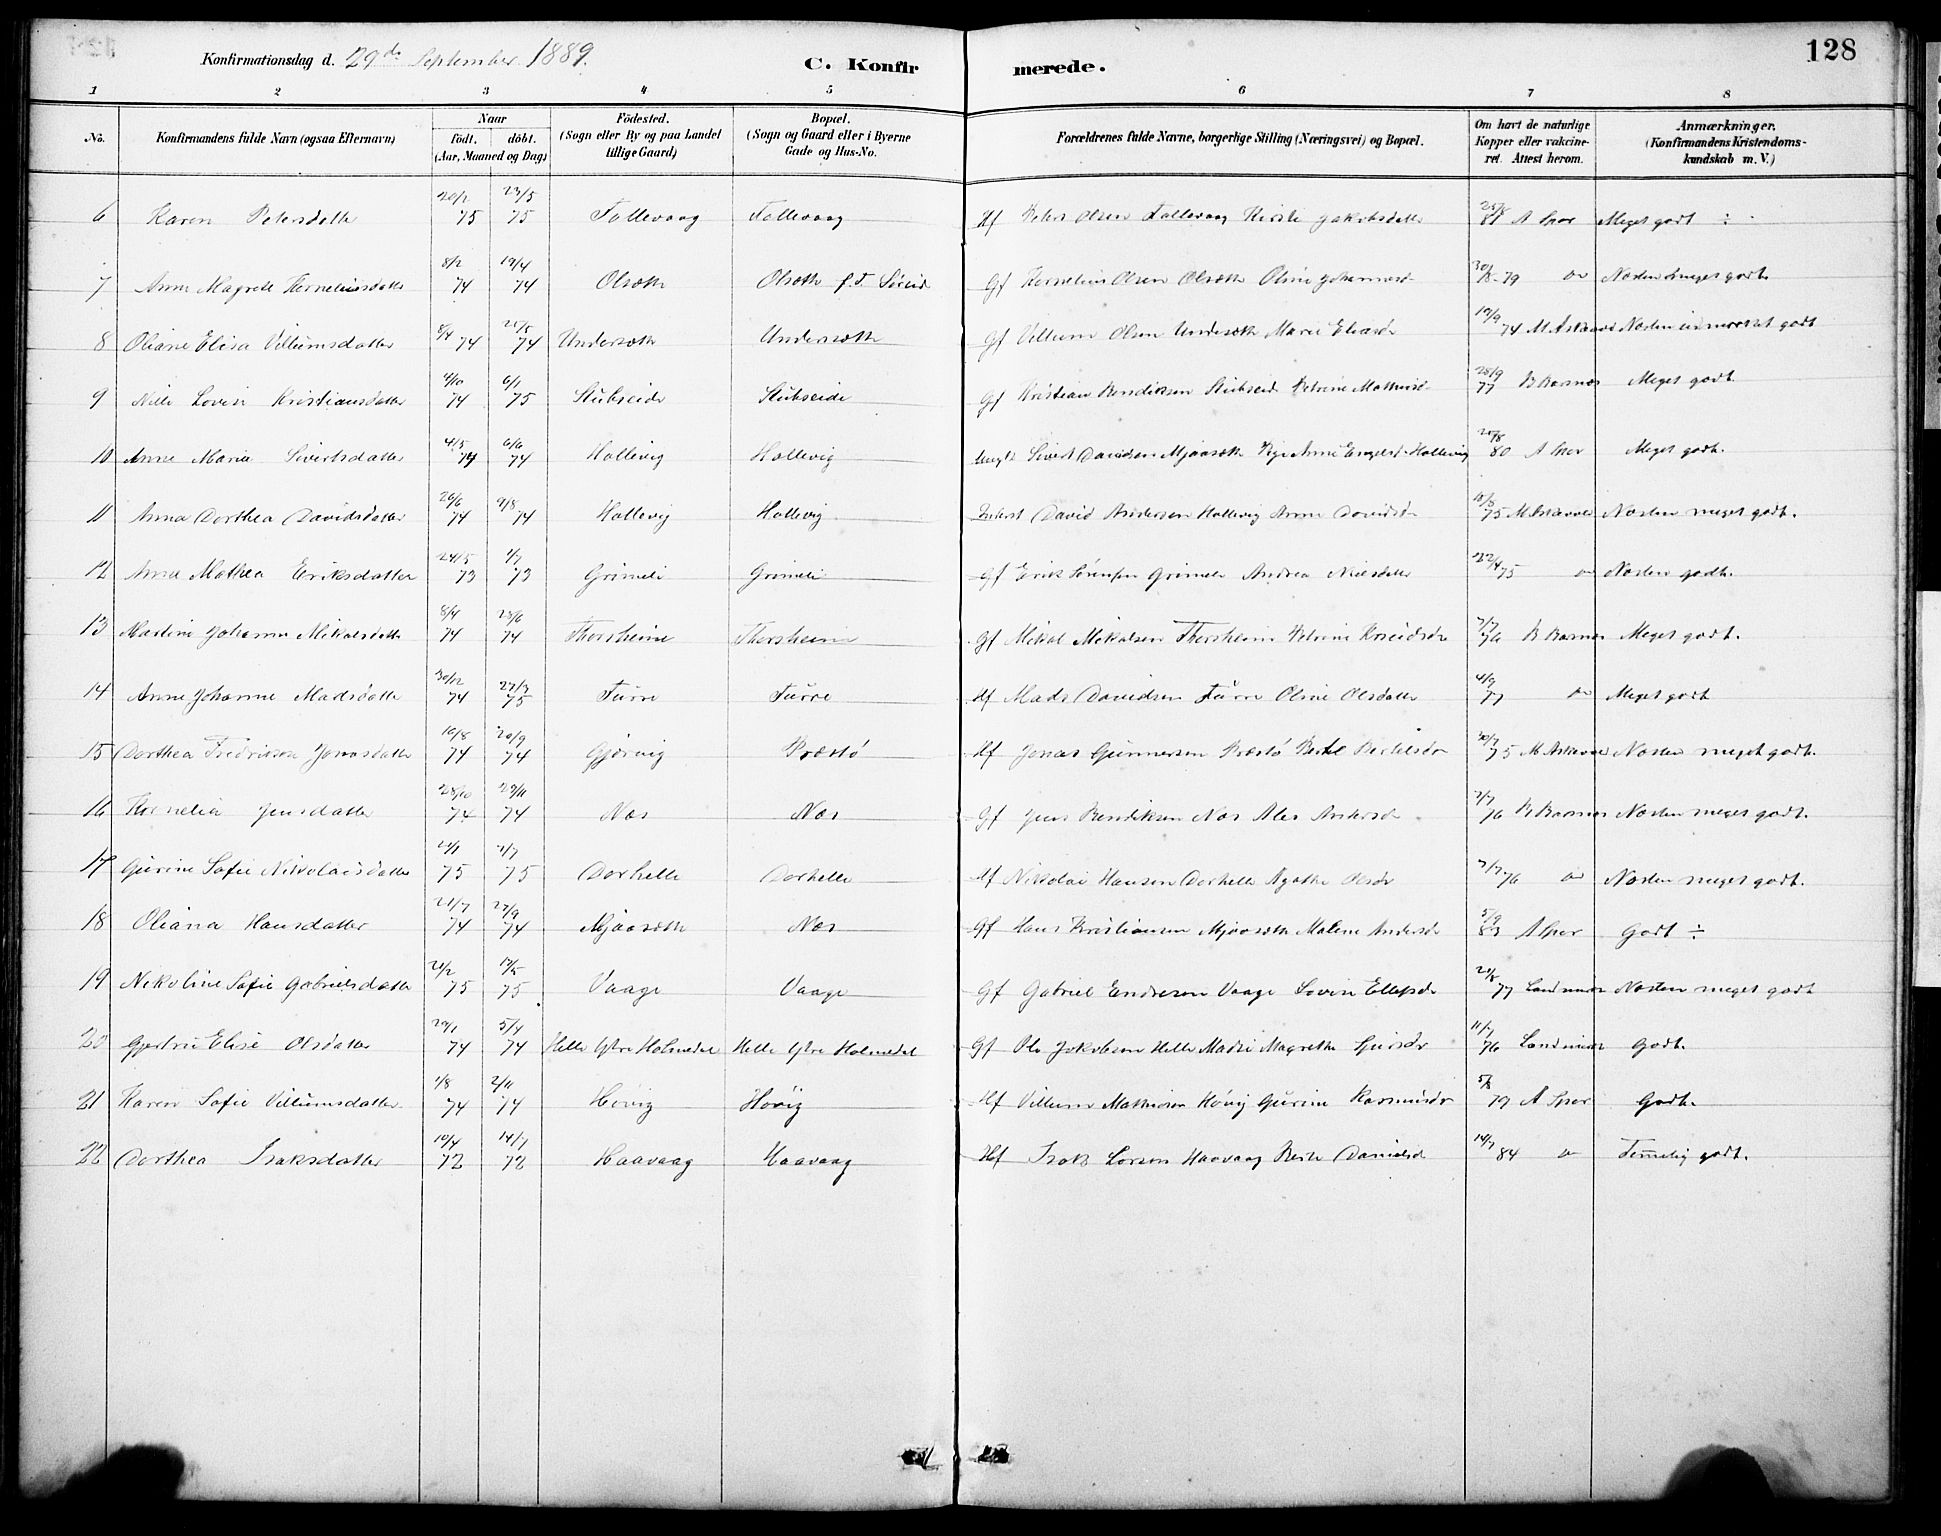 Konfirmationsdag d. 29de September 1889.
C. Konfirmerede.
128
1 2 3 4 5 6 7 8
No. Konfirmandens fulde Navn (ogsaa Efternavn) Naar födt. döbt. (Aar, Maaned og Dag) Födested. (Sogn eller By og paa Landet tillige Gaard) Bopæl. (Sogn og Gaard eller i Byerne Gade og Hus-No. Forældrenes fulde Navne, borgerlige Stilling (Næringsvei) og Bopæl. Om havt de naturlige Kopper eller vakcineret. Attest herom. Anmærkninger. (Konfirmandens Kristendomskundskab m. V.)
6 Karen Petersdatter 20/2 75 23/5 75 Tollevaag Tollevaag Hf Peter Olsen Tollevaag Kirsti Jakobsdatter 81 A Spor Meget godt ÷
7 Anne Magrete Korneliusdatter 8/2 74 19/4 74 Olsæth Olsæth f.T. Søreid Gf Kornelius Olsen Olsæth Oline Johannesd 79 Næsten meget godt
8 Oliane Elisa Villumsdatter 8/4 74 25/5 74 Undersæth Undersæth Gf Villum Olsen Undersæth Marie Eliasdr 19/9 74 M. Askevold Næsten udmærket godt
9 Nille Lovise Kristiansdatter 4/10 74 6/1 75 Stubseide Stubseide Gf Kristian Bendiksen Stubseid Petrine Mathiasd 28/9 77 B Barsnes Meget godt
10 Anne Marie Sivertsdatter 4/5 74 6/6 74 Hollevig Hollevig Ungk Sivert Davidsen Mjaasæth Pige Anne Engelsd Hollevig 20/8 80 A Spor Meget godt
11 Anna Dorthea Davidsdatter 26/6 74 9/8 74 Hollevig Hollevig Inderst David Andersen Hollevig Anne Davidsdr 75 M. Askevold Næsten meget godt.
12 Anne Mathea Eriksdatter 24/5 73 1/7 73 Grimeli Grimeli Gf Erik Sørensen Grimeli Andrea Nielsdatter 22/4 75 Næsten godt.
13 Martine Johanne Mikalsdatter 8/4 74 25/6 74 Thorsheim Thorsheim Gf Mikal Mikalsen Thorsheim Petrine 7/7 76 B Barsnes Meget godt.
14 Anne Johanne Madsdatter 30/12 74 27/3 75 Furre Furre Hf Mads Davidsen Furre Oline Olsdatter 4/9 77 Meget godt
15 Dorthea Fredrikke Jonasdatter 16/8 74 20/9 74 Gjørvig Præstø Hf Jonas Gunnersen Præstø Bertel Bertelsdr 30/7 75 M Askevold Næsten meget godt.
16 Kornelia Jensdatter 28/10 74 29/11 74 Næs Næs Gf Jens Bendiksen Næs Ales Andersd 7/7 76 B Barsnes Næsten meget godt.
17 Gurine Sofie Nikolaisdatter 75 75 Dorhelle Dorhelle Hf Nikolai Hansen Dorhelle Agathe Olsdr 7/7 76 Næsten meget godt.
18 Oliana Hansdatter 21/7 74 27/9 74 Mjaasæth Næs Gf Hans Kristiansen Mjaasæth Malene Andersdr 5/9 83 A Spor Godt ÷
19 Nikoline Sofie Gabrielsdatter 21/2 75 17/5 75 Vaage Vaage Gf Gabriel Endresen Vaage Lovise Ellefsdr 77 Landmark Næsten meget godt
20 Gjertrue Elise Olsdatter 29/1 74 5/4 74 Helle Ytre Holmedal Helle Ytre Holmedal Gf Ole Jakobsen Helle Madsi Magrethe Sjursdr 11/7 76 Landmark Godt.
21 Karen Sofie Villumsdatter 1/8 74 2/11 74 Høvig Høvig Hf Villum Mathiasen Høvig Gurine Rasmusdr 5/8 79 A Spor Godt.
22 Dorthea Isaksdatter 10/4 72 14/7 72 Haavaag Haavaag Hf Isak Larsen Haavaag Danielsd 14/7 84 Temmelig godt.